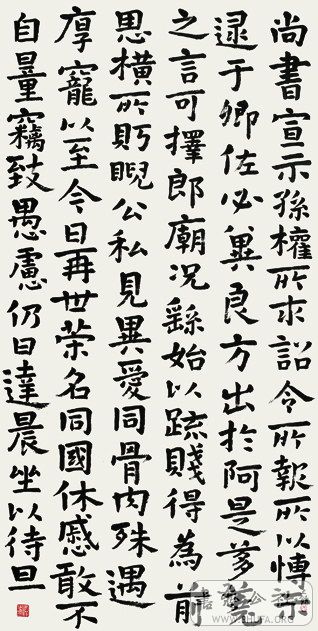 尚書宣示孫權所求詔令所報所以博示
逮于卿佐必冀良方出於阿是芻蕘
之言可擇郎廟况繇始以疏賤得為前
恩橫所眄睨公私見異愛同骨肉殊遇
厚寵以至今日再世榮名同國休慼敢不
自量竊致愚慮仍日達晨坐以待旦